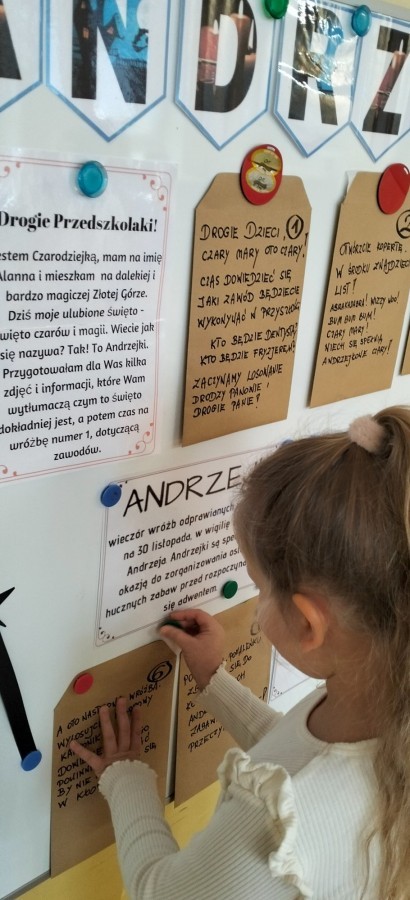 ANDRZ
Drogie Przedszkolaki!
estem Czarodziejką, mam na imię
Alanna i mieszkam na dalekiej i
bardzo magicznej Złotej Górze.
Dziś moje ulubione święto -
święto czarów i magii. Wiecie jak
się nazywa? Tak! To Andrzejki.
Przygotowałam dla Was kilka
zdjęć i informacji, które Wam
wytłumaczą czym to święto
dokładniej jest, a potem czas na
wróżbę numer 1, dotyczącą
zawodów.
DROGIE DZIECI, 1
CZARY MARY OTO CZARY!
CZAS DOWIEDZIEĆ SIĘ
JAKI ZAWÓD BĘDZIECIE
WYKONYWAĆ W PRZYSZŁOŚCI
KTO BĘDZIE DENTYSTĄ?
KTO BĘDZIE FRYZJEREM?
ZACZYNAMY LOSOWANIE
DRODZY PANOWIE I
DROGIE PANIE!
2
OTWÓRZCIE KOPERTĘ,
W ŚRODKU ZNAJDZIECIE
LIST!
ABRAKADABRA!
BUM BUM BUM!
CZARY MARY!
NIECH SIĘ SPEŁNIĄ
ANDRZEJKOWE CZARY!
ANDRZE
wieczór wróżb odprawianych
na 30 listopada, w wigilię
Andrzeja. Andrzejki są spe
okazją do zorganizowania os
hucznych zabaw przed rozpoczyna
się adwentem.
6
A OTO NASTĘPNA WRÓŻBA.
BY NIE